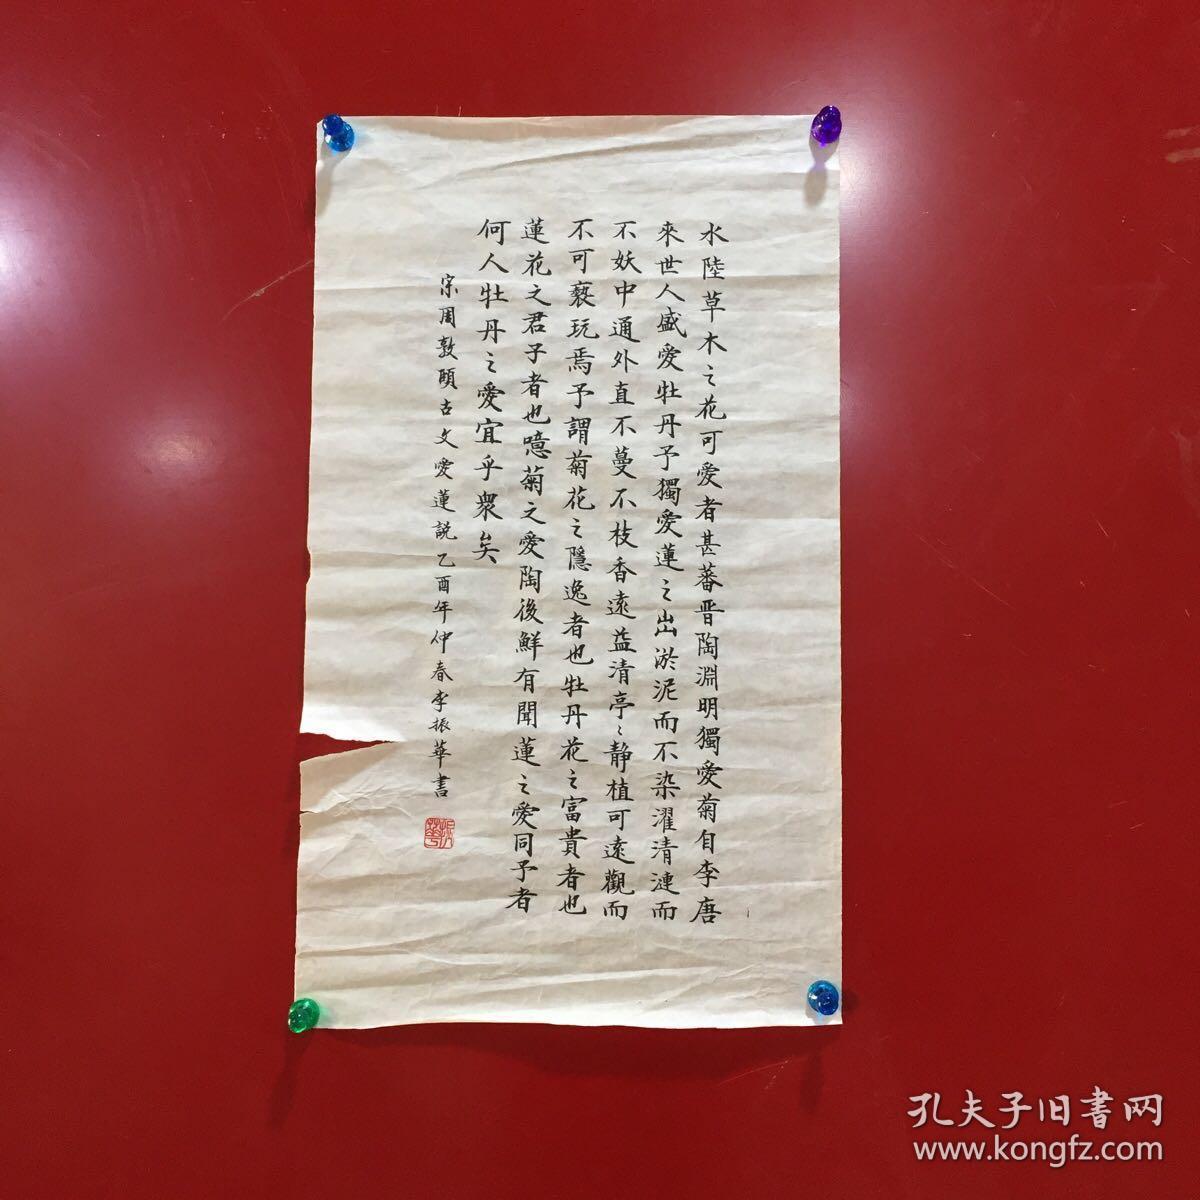 水陸草木之花可愛者甚蕃晋陶淵明獨愛菊自李唐
來世人盛愛牡丹予獨愛蓮之出淤泥而不染濯清漣而
不妖中通外直不蔓不枝香遠益清亭〻静植可遠觀而
不可褻玩焉予謂菊花之隱逸者也牡丹花之富貴者也
蓮花之君子者也噫菊之愛陶後鮮有聞蓮之愛同予者
何人牡丹之愛宜乎衆矣
宗周敦頤古文愛蓮説乙酉年仲春李振華書
振華
孔夫子旧書网
www.kongfz.com